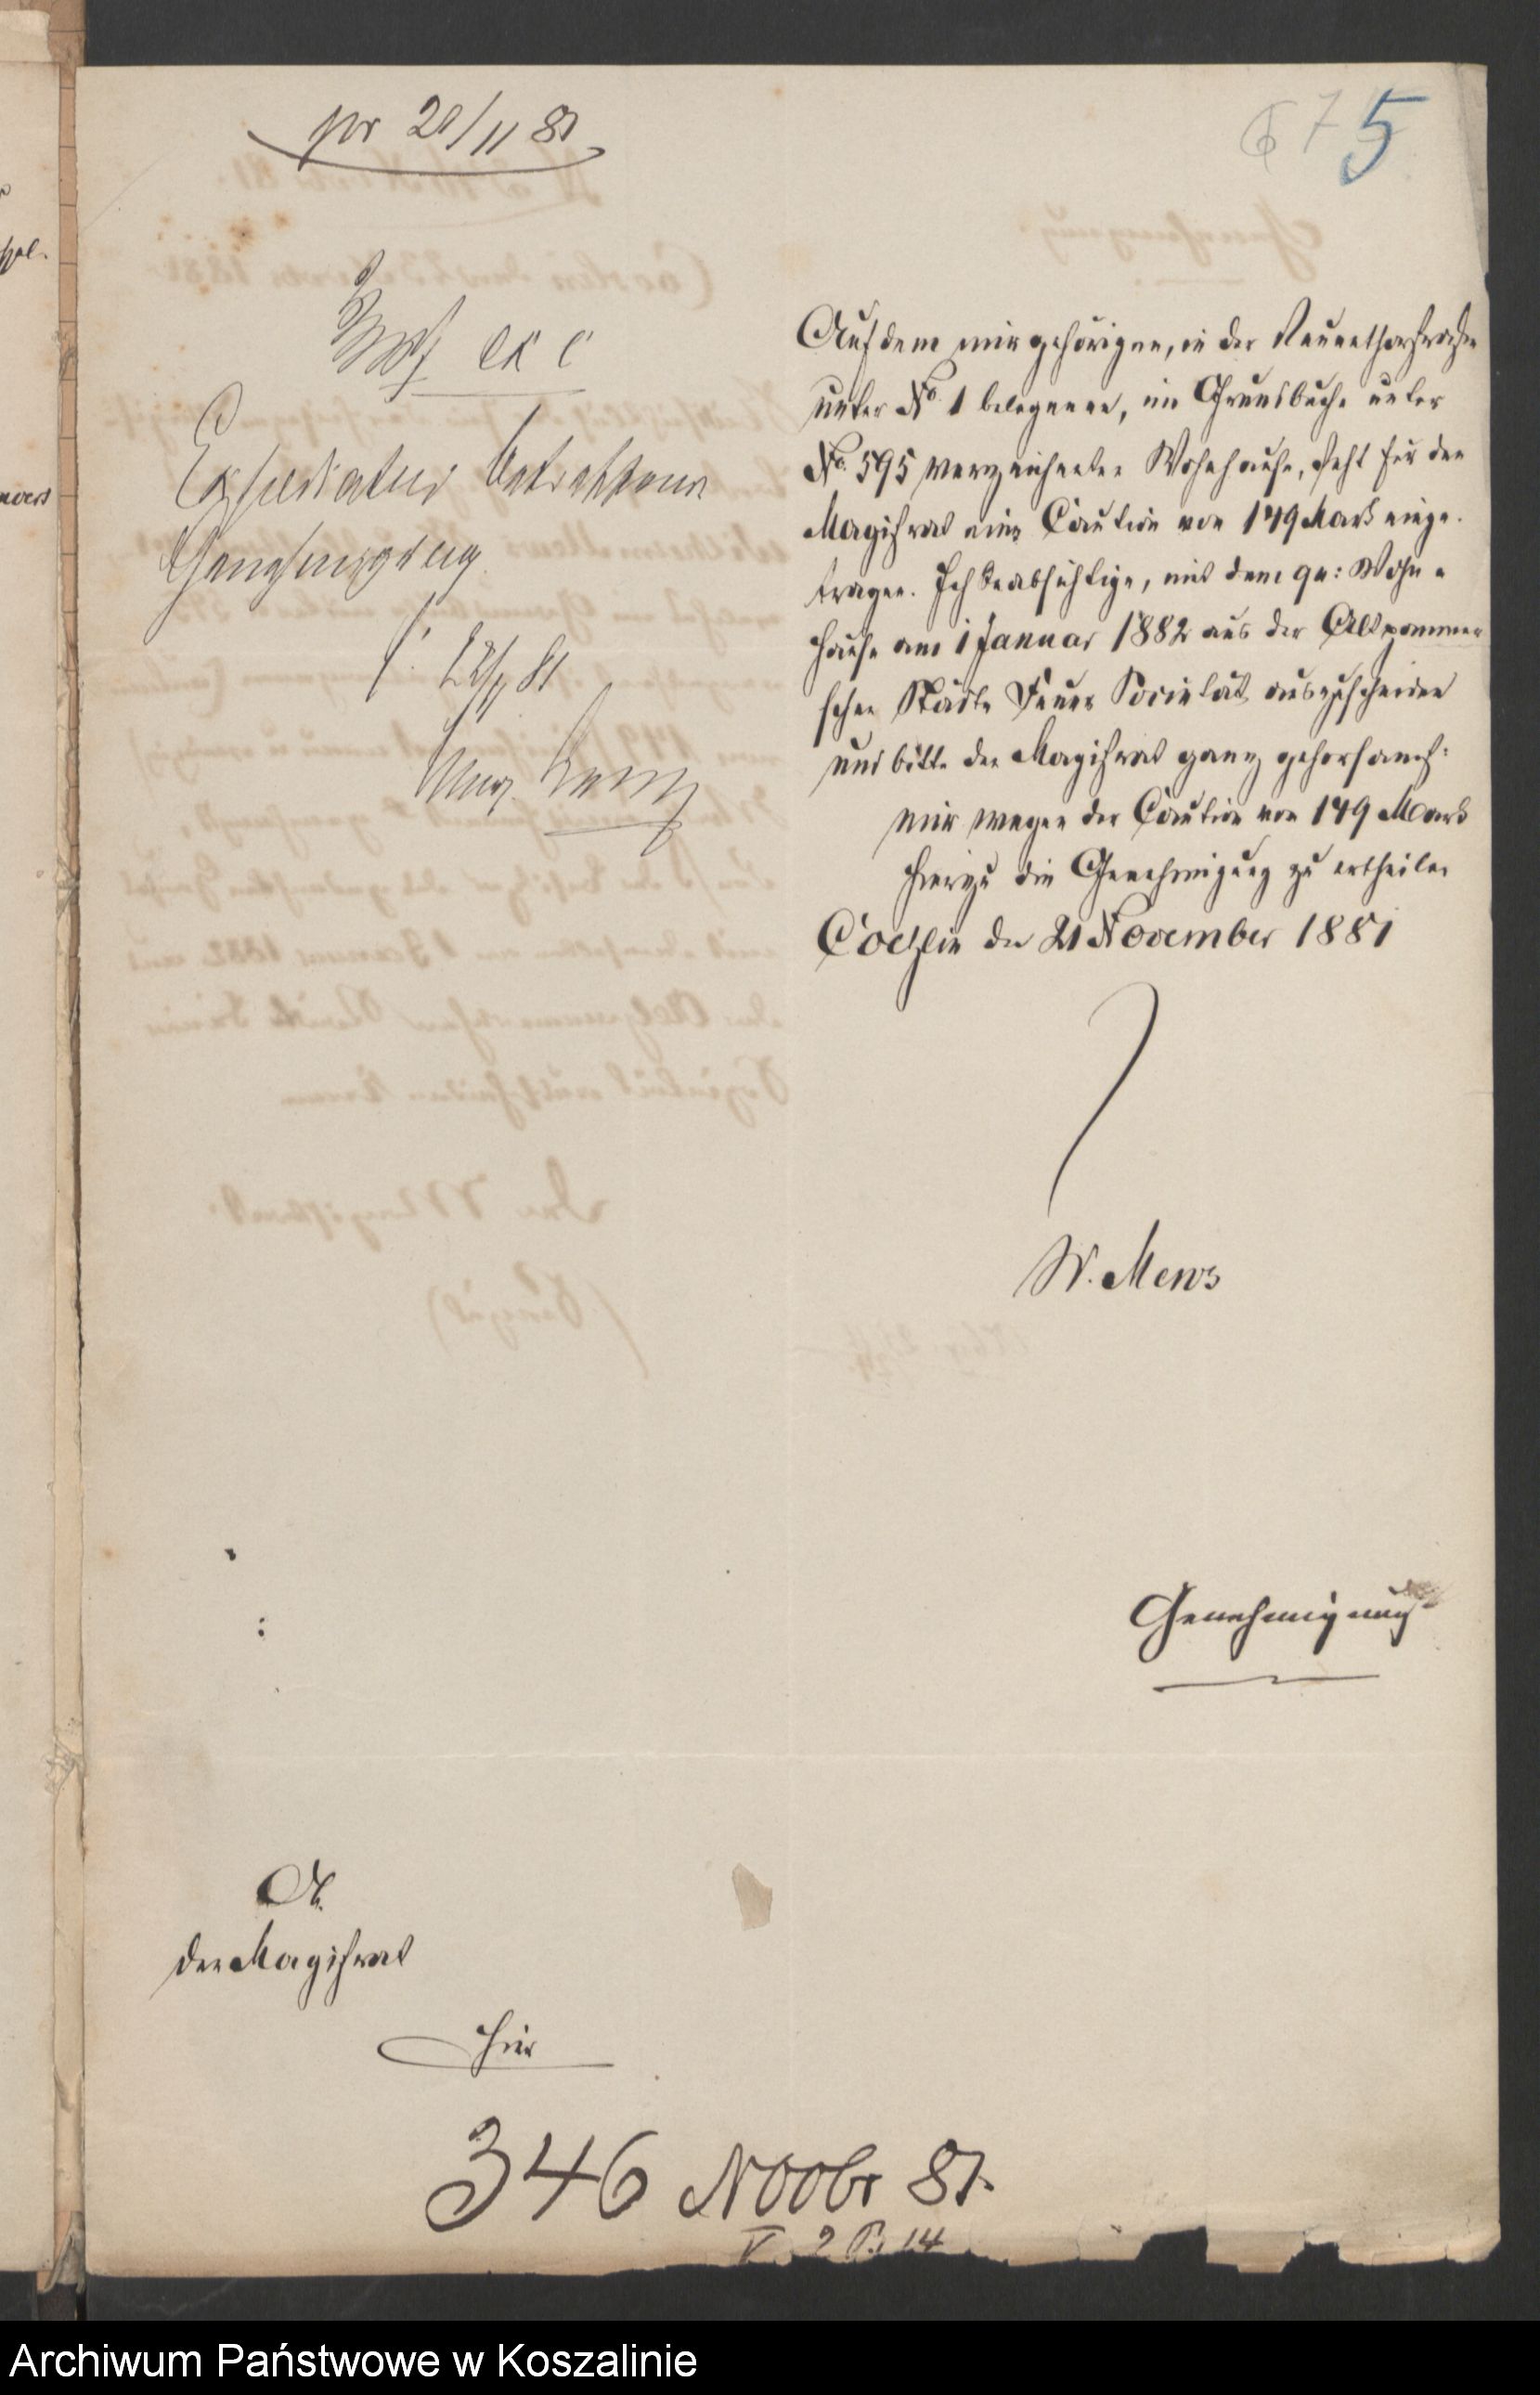 pr 21/11 81.
6 7 5
ex c
Expediatur betreffende
Genehmigung.
22/11 81
Auf dem mir gehörigen, in der Neuenthorstraße
unter No 1 belegenen, im Grundbuche unter
No. 595 verzeichneten Wohnhause, steht für den
Magistrat eine Caution von 149 Mark einge-
tragen. Ich beabsichtige, mit dem qu: Wohn-
hause am 1 Januar 1882 aus der Altpommer-
schen Städte Feuer Societät auszuscheiden
und bitte den Magistrat ganz gehorsamst:
mir wegen der Caution von 149 Mark
hierzu die Genehmigung zu ertheilen
Coeslin den 21 November 1881
W. Mews
Genehmigung
An
den Magistrat
hier
346 Novbr 81.
V. 2 P. 14
Archiwum Państwowe w Koszalinie